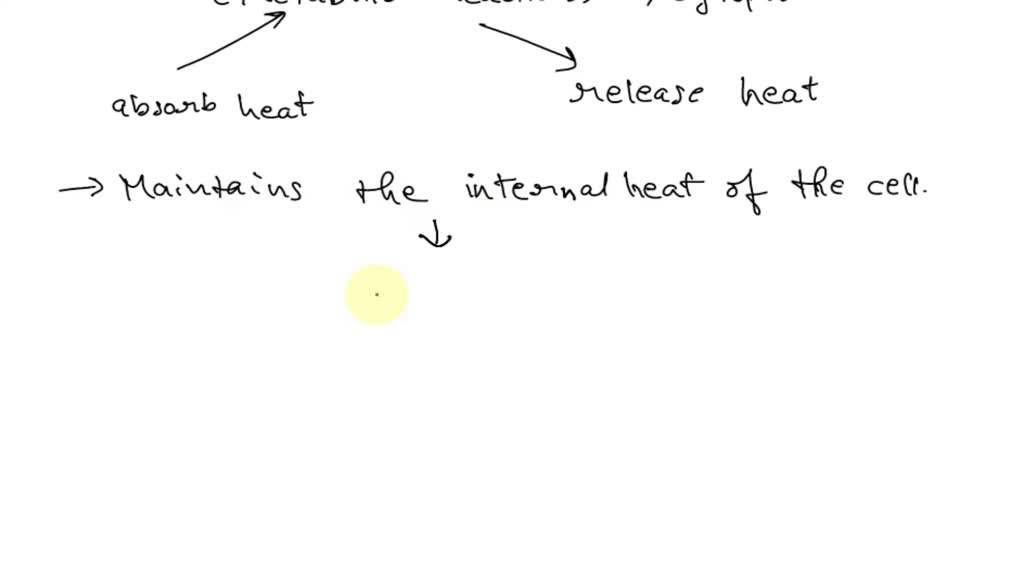 absorb heat
release heat
→ Maintains the internal heat of the cell.
↓